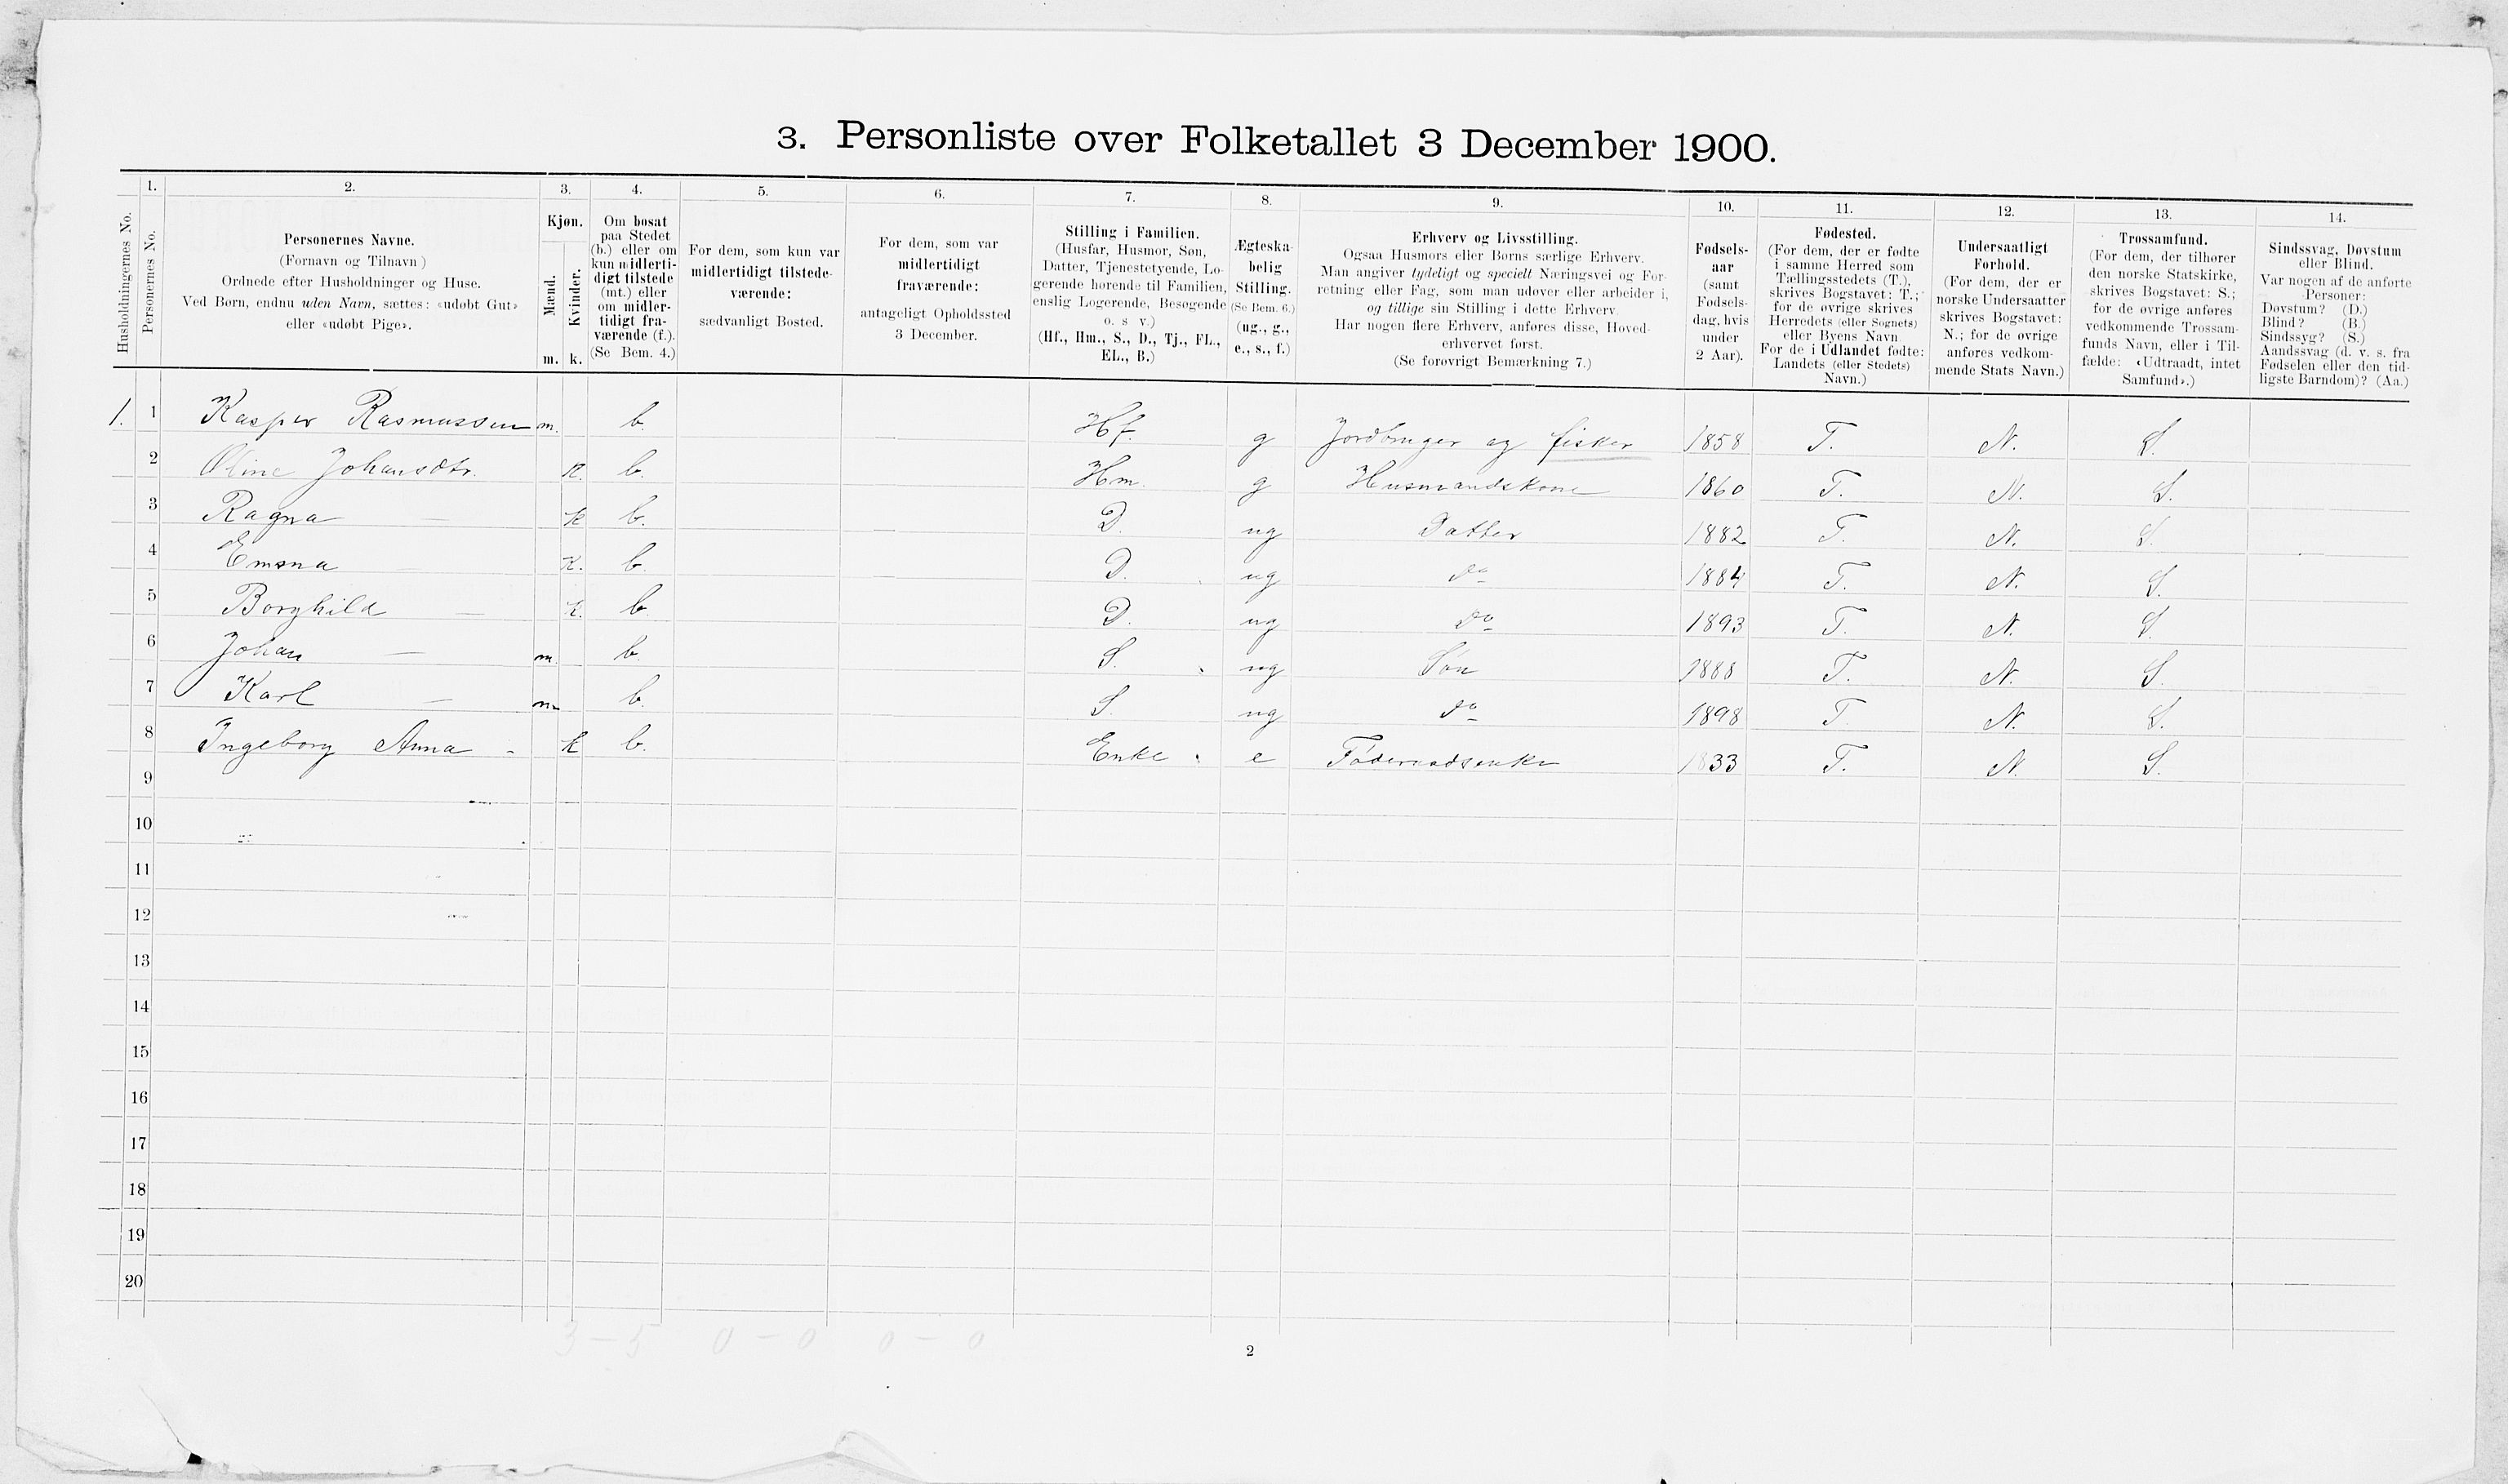 3. Personliste over Folketallet 3 December 1900.
1. 2. 3. 4. 5. 6. 7. 8. 9. 10. 11. 12. 13. 14.
Husholdningernes No.
Personernes No.
Personernes Navne.
(Fornavn og Tilnavn)
Ordnede efter Husholdninger og Huse.
Ved Børn, endnu uden Navn, sættes: «udøbt Gut»
eller «udøbt Pige».
Kjøn.
Mænd.
Kvinder.
m. k.
Om bosat
paa Stedet
(b.) eller om
kun midlerti-
digt tilstede
(mt.) eller
om midler-
tidigt fra-
værende (f.).
(Se Bem. 4.)
For dem, som kun var
midlertidigt tilstede-
værende:
sædvanligt Bosted.
For dem, som var
midlertidigt
fraværende:
antageligt Opholdssted
3 December.
Stilling i Familien.
(Husfar, Husmor, Søn,
Datter, Tjenestetyende, Lo-
gerende hørende til Familien,
enslig Logerende, Besøgende
o. s v.)
(Hf., Hm., S., D., Tj., FL.,
EL., B.)
Ægteska-
belig
Stilling.
(Se Bem. 6.)
(ug., g.,
e., s., f.)
Erhverv og Livsstilling.
Ogsaa Husmors eller Børns særlige Erhverv.
Man angiver tydeligt og specielt Næringsvei og For-
retning eller Fag, som man udøver eller arbeider i,
og tillige sin Stilling i dette Erhverv.
Har nogen flere Erhverv, anføres disse, Hoved-
erhvervet først.
(Se forøvrigt Bemærkning 7.)
Fødsels-
aar
(samt
Fødsels-
dag, hvis
under
2 Aar).
Fødested.
(For dem, der er fødte
i samme Herred som
Tællingsstedets (T.),
skrives Bogstavet: T.;
for de øvrige skrives
Herredets (eller Sognets)
eller Byens Navn
For de i Udlandet fødte:
Landets (eller Stedets)
Navn.)
Undersaatligt
Forhold.
(For dem, der er
norske Undersaatter
skrives Bogstavet:
N.; for de øvrige
anføres vedkom-
mende Stats Navn.)
Trossamfund.
(For dem, der tilhører
den norske Statskirke,
skrives Bogstavet: S.;
for de øvrige anføres
vedkommende Trossam-
funds Navn, eller i Til-
fælde: «Udtraadt, intet
Samfund».)
Sindssvag, Døvstum
eller Blind.
Var nogen af de anførte
Personer:
Døvstum? (D.)
Blind? (B.)
Sindssyg? (S.)
Aandssvag (d. v. s. fra
Fødselen eller den tid-
ligste Barndom)? (Aa.)
1. 1 Kasper Rasmussen m. b. Hf. g Jordbruger og fisker 1858 T. N. S.
2 Oline Johansdtr. K. b. Hm. g Husmandskone 1860 T. N. S.
3 Ragna — k b. D. ug Datter 1882 T. N. S.
4 K. b. D. ug do 1884 T. N. S.
5 Borghild — k. b. D. ug do 1893 T. N. S.
6 Johan — m. b. S. ug Søn 1888 T. N. S.
7 Karl — m b. S. ug do 1898 T N. S.
8 Ingeborg Anna - k b. Enke e Føderaadsenke 1833 T. N. S.
9
10
11
12
13
14
15
16
17
18
19
20
3 — 5 0 — 0 0 — 0
2